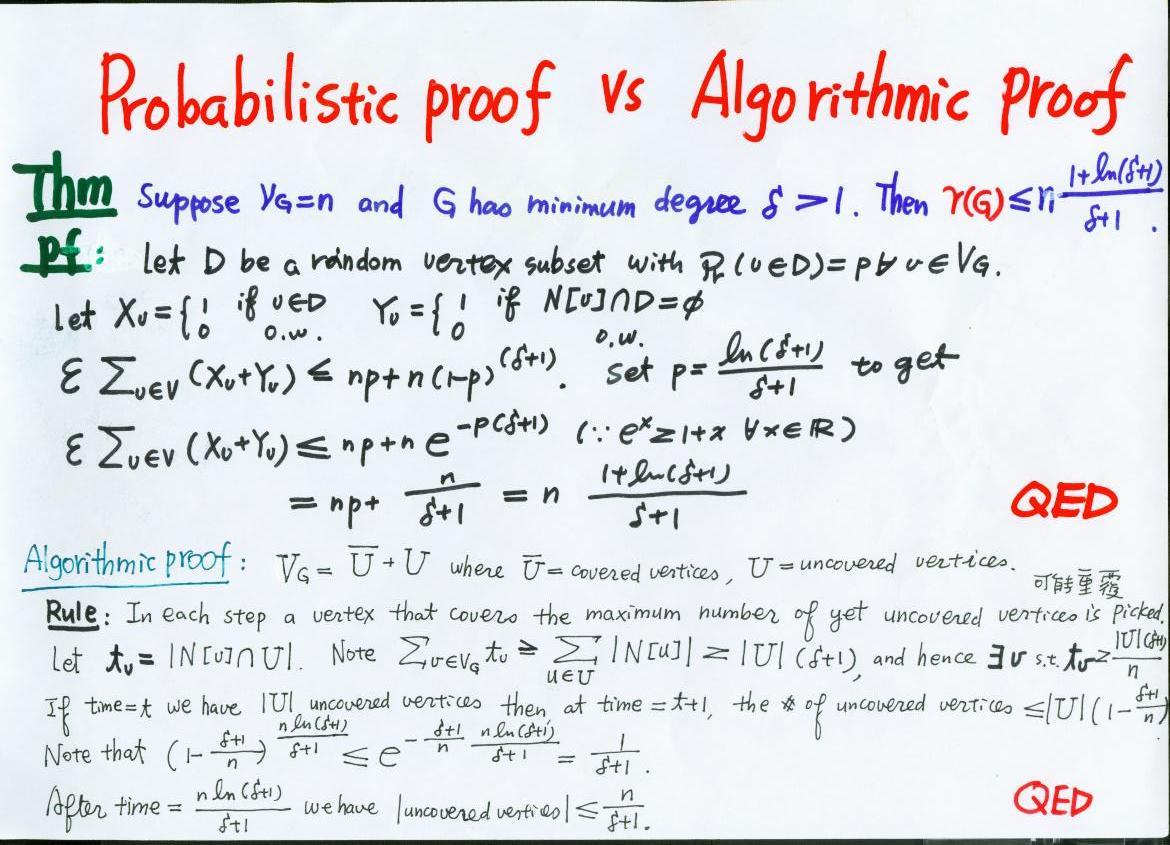 Probabilistic proof vs Algorithmic proof
Thm Suppose V_G=n and G has minimum degree δ >1. Then γ(G)≤n (1+ln(δ+1))/(δ+1).
pf: Let D be a random vertex subset with Pr(v∈D)=p ∀ v∈V_G.
Let X_v={1 if v∈D 0 o.w. Y_v={1 if N[v]∩D=∅ 0 o.w.
ℰ ∑_{v∈V} (X_v+Y_v) ≤ np+n(1-p)^{(δ+1)}. set p= ln(δ+1)/(δ+1) to get
ℰ ∑_{v∈V} (X_v+Y_v) ≤ np+n e^{-p(δ+1)} (∵ e^x≥1+x ∀x∈ℝ)
= np+ n/(δ+1) = n (1+ln(δ+1))/(δ+1)
QED
Algorithmic proof: V_G = Ū + U where Ū = covered vertices, U = uncovered vertices.
可能重覆
Rule: In each step a vertex that covers the maximum number of yet uncovered vertices is picked.
Let t_v= |N[v]∩U|. Note ∑_{v∈V_G} t_v ≥ ∑_{u∈U} |N[u]| ≥ |U|(δ+1), and hence ∃v s.t. t_v≥ |U|(δ+1)/n
If time=t we have |U| uncovered vertices then at time = t+1, the # of uncovered vertices ≤|U|(1-(δ+1)/n)
Note that (1-(δ+1)/n)^{n ln(δ+1)/(δ+1)} ≤ e^{-(δ+1)/n · n ln(δ+1)/(δ+1)} = 1/(δ+1).
After time = n ln(δ+1)/(δ+1) we have |uncovered vertices| ≤ n/(δ+1).
QED